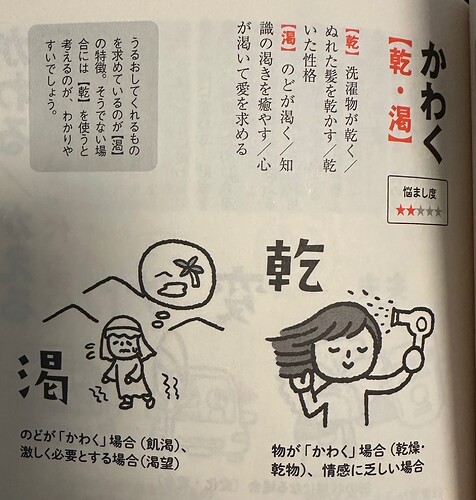 かわく
【乾・渇】
悩まし度
★★★★★
【乾】 洗濯物が乾く／
ぬれた髪を乾かす／乾
いた性格
【渇】 のどが渇く／知
識の渇きを癒やす／心
が渇いて愛を求める
うるおしてくれるもの
を求めているのが【渇】
の特徴。そうでない場
合には【乾】を使うと
考えるのが、わかりや
すいでしょう。
乾
物が「かわく」場合（乾燥・
乾物）、情感に乏しい場合
渇
のどが「かわく」場合（飢渇）、
激しく必要とする場合（渇望）